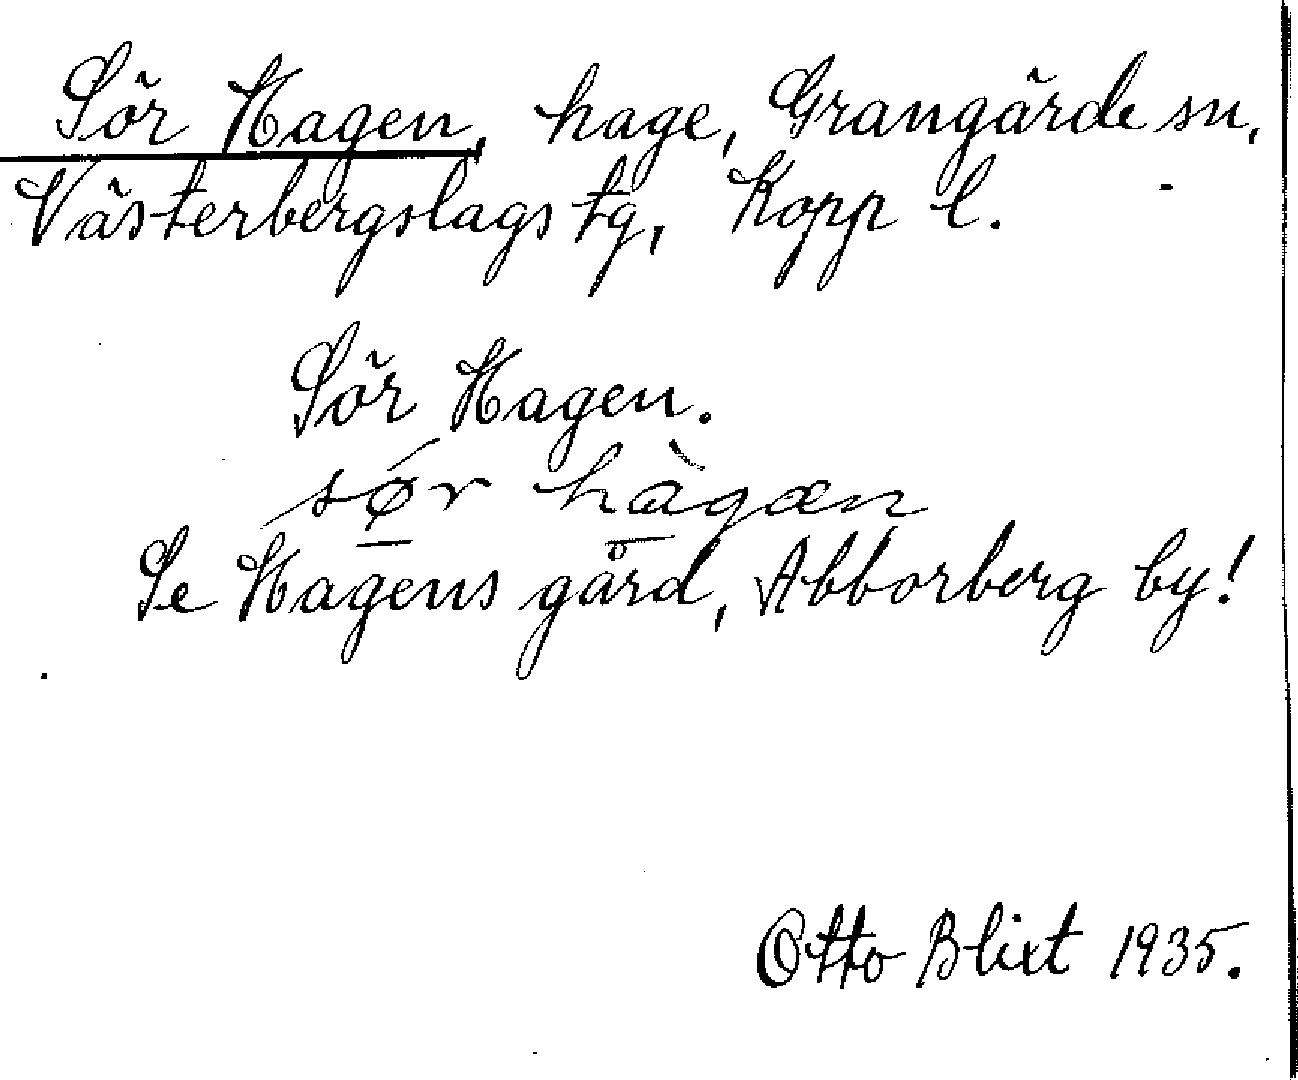 Sör Hagen, hage, Grangärde sn,
Västerbergslags tg, Kopp l.
Sör Hagen.
sǿ̱r hà̱gæn
Se Hagens gård, Abborberg by!
Otto Blixt 1935.